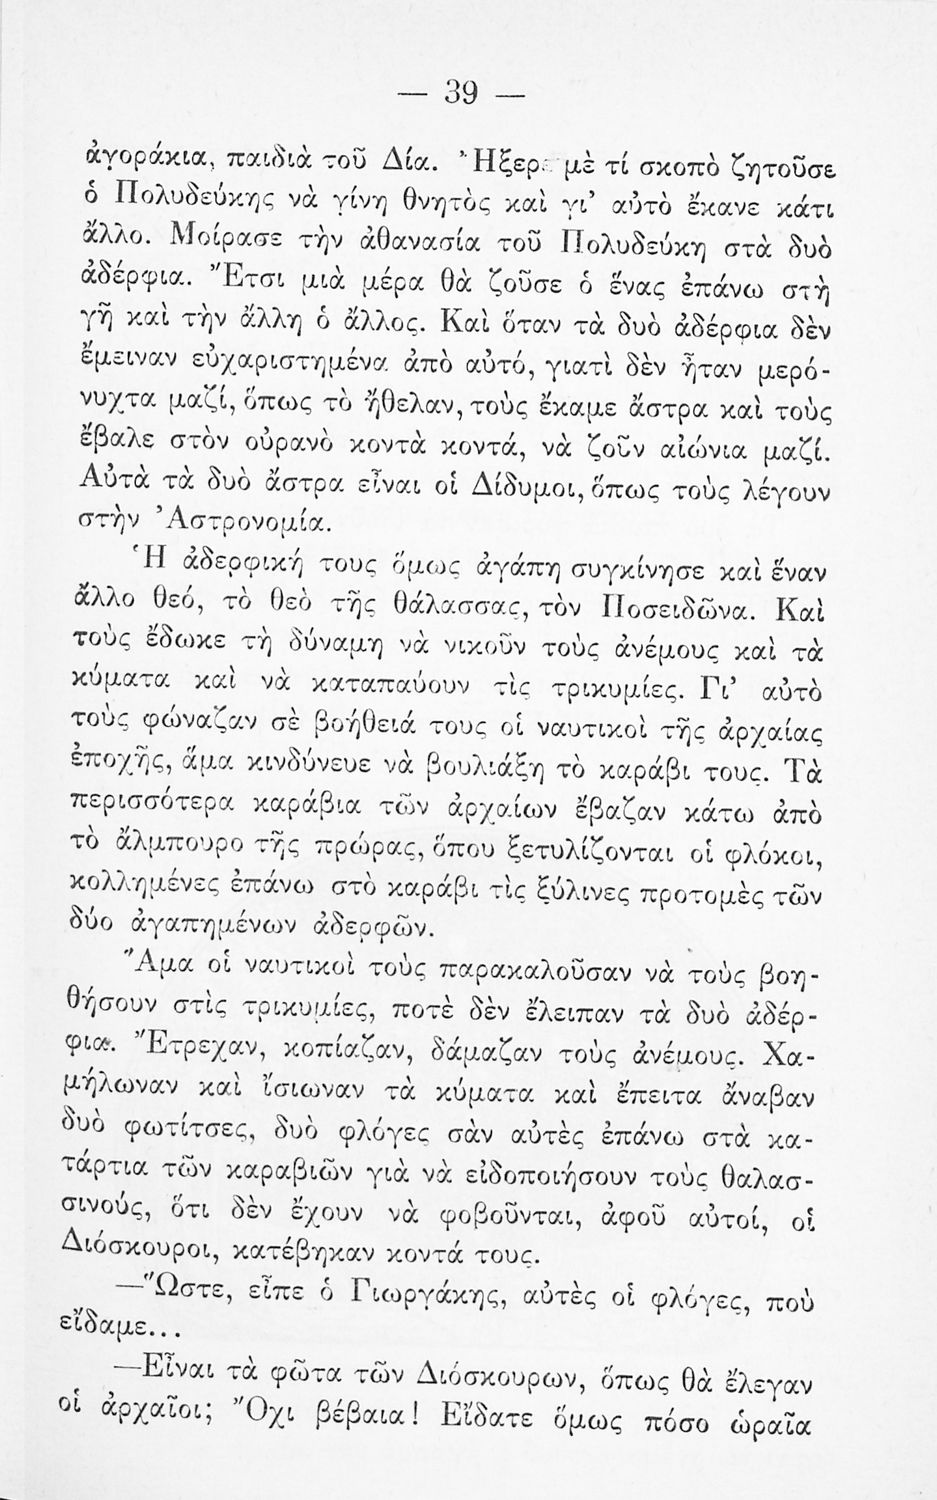 — 39 —
ἀγοράκια, παιδιὰ τοῦ Δία. Ἤξερε μὲ τί σκοπὸ ζητοῦσε
ὁ Πολυδεύκης νὰ γίνη θνητὸς καὶ γι’ αὐτὸ ἔκανε κάτι
ἄλλο. Μοίρασε τὴν ἀθανασία τοῦ Πολυδεύκη στὰ δυὸ
ἀδέρφια. Ἔτσι μιὰ μέρα θὰ ζοῦσε ὁ ἕνας ἐπάνω στὴ
γῆ καὶ τὴν ἄλλη ὁ ἄλλος. Καὶ ὅταν τὰ δυὸ ἀδέρφια δὲν
ἔμειναν εὐχαριστημένα ἀπὸ αὐτό, γιατὶ δὲν ἦταν μερό-
νυχτα μαζί, ὅπως τὸ ἤθελαν, τοὺς ἔκαμε ἄστρα καὶ τοὺς
ἔβαλε στὸν οὐρανὸ κοντὰ κοντά, νὰ ζοῦν αἰώνια μαζί.
Αὐτὰ τὰ δυὸ ἄστρα εἶναι οἱ Δίδυμοι, ὅπως τοὺς λέγουν
στὴν Ἀστρονομία.
Ἡ ἀδερφική τους ὅμως ἀγάπη συγκίνησε καὶ ἕναν
ἄλλο θεό, τὸ θεὸ τῆς θάλασσας, τὸν Ποσειδῶνα. Καὶ
τοὺς ἔδωκε τὴ δύναμη νὰ νικοῦν τοὺς ἀνέμους καὶ τὰ
κύματα καὶ νὰ καταπαύουν τὶς τρικυμίες. Γι’ αὐτὸ
τοὺς φώναζαν σὲ βοήθειά τους οἱ ναυτικοὶ τῆς ἀρχαίας
ἐποχῆς, ἅμα κινδύνευε νὰ βουλιάξη τὸ καράβι τους. Τὰ
περισσότερα καράβια τῶν ἀρχαίων ἔβαζαν κάτω ἀπὸ
τὸ ἄλμπουρο τῆς πρώρας, ὅπου ξετυλίζονται οἱ φλόκοι,
κολλημένες ἐπάνω στὸ καράβι τὶς ξύλινες προτομὲς τῶν
δύο ἀγαπημένων ἀδερφῶν.
Ἅμα οἱ ναυτικοὶ τοὺς παρακαλοῦσαν νὰ τοὺς βοη-
θήσουν στὶς τρικυμίες, ποτὲ δὲν ἔλειπαν τὰ δυὸ ἀδέρ-
φια. Ἔτρεχαν, κοπίαζαν, δάμαζαν τοὺς ἀνέμους. Χα-
μήλωναν καὶ ἴσιωναν τὰ κύματα καὶ ἔπειτα ἄναβαν
δυὸ φωτίτσες, δυὸ φλόγες σὰν αὐτὲς ἐπάνω στὰ κα-
τάρτια τῶν καραβιῶν γιὰ νὰ εἰδοποιήσουν τοὺς θαλασ-
σινούς, ὅτι δὲν ἔχουν νὰ φοβοῦνται, ἀφοῦ αὐτοί, οἱ
Διόσκουροι, κατέβηκαν κοντά τους.
—Ὥστε, εἶπε ὁ Γιωργάκης, αὐτὲς οἱ φλόγες, ποὺ
εἴδαμε...
—Εἶναι τὰ φῶτα τῶν Διόσκουρων, ὅπως θὰ ἔλεγαν
οἱ ἀρχαῖοι; Ὄχι βέβαια! Εἴδατε ὅμως πόσο ὡραῖα